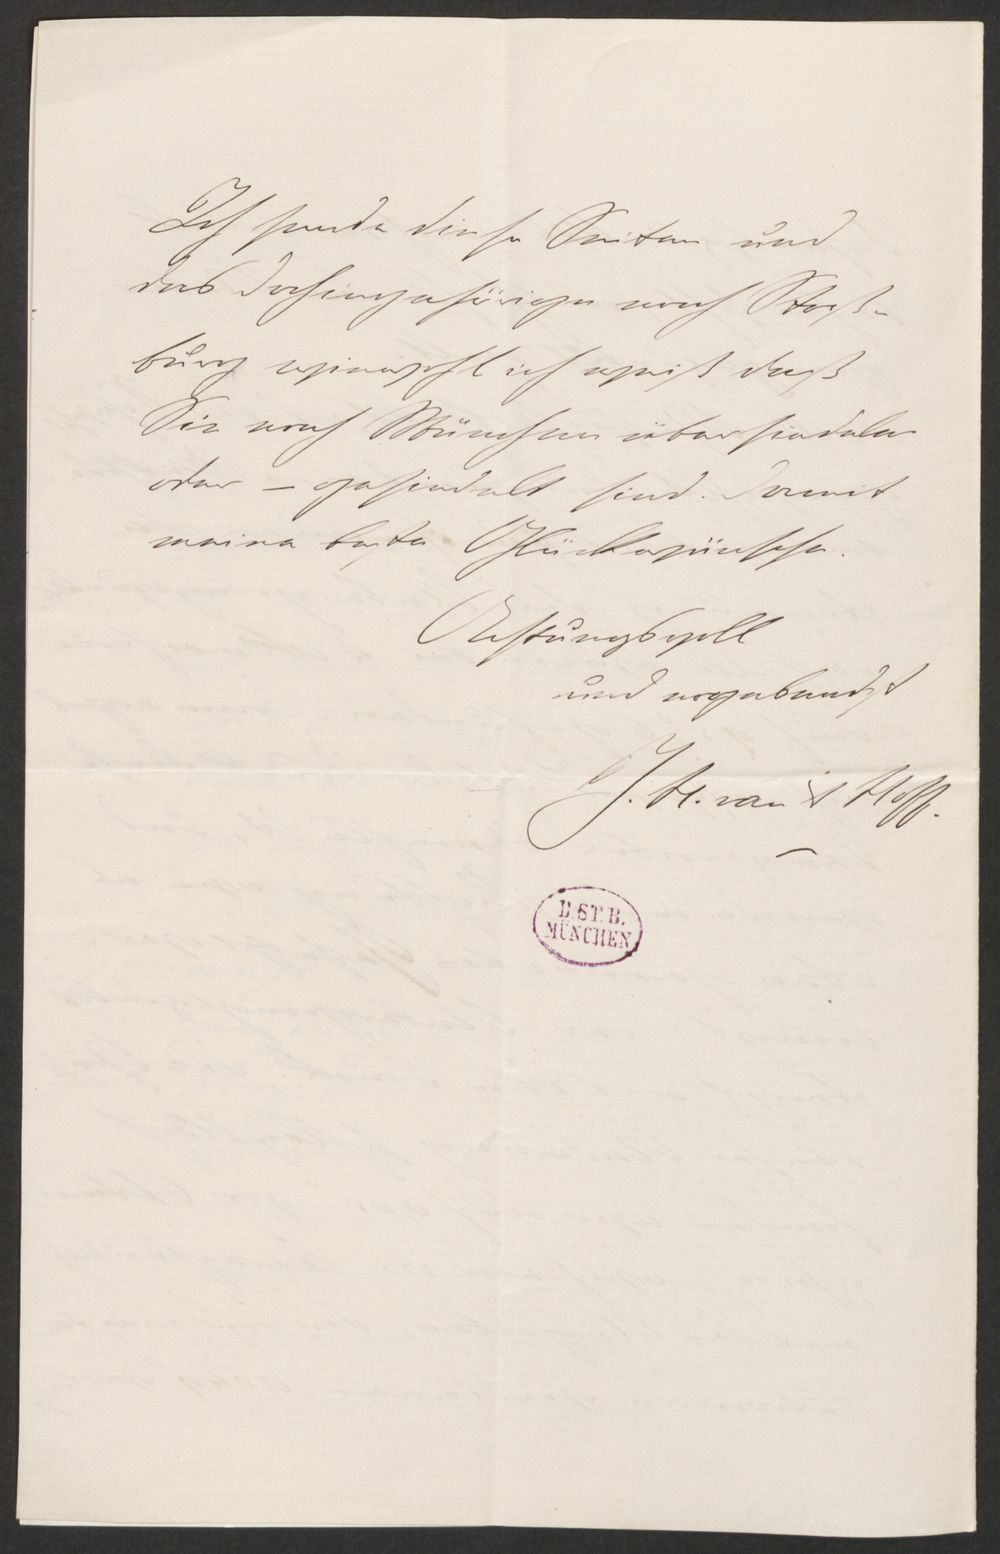 Ich sende diese Seiten und
das Dahingehörige nach Straß-
burg wiewohl ich weiß daß
Sie nach München übersiedeln
oder – gesiedelt sind. Damit
meine beste Glückwünsche.
Achtungsvoll
und ergebendst
J. H. van 't Hoff.
B. ST. B.
MÜNCHEN